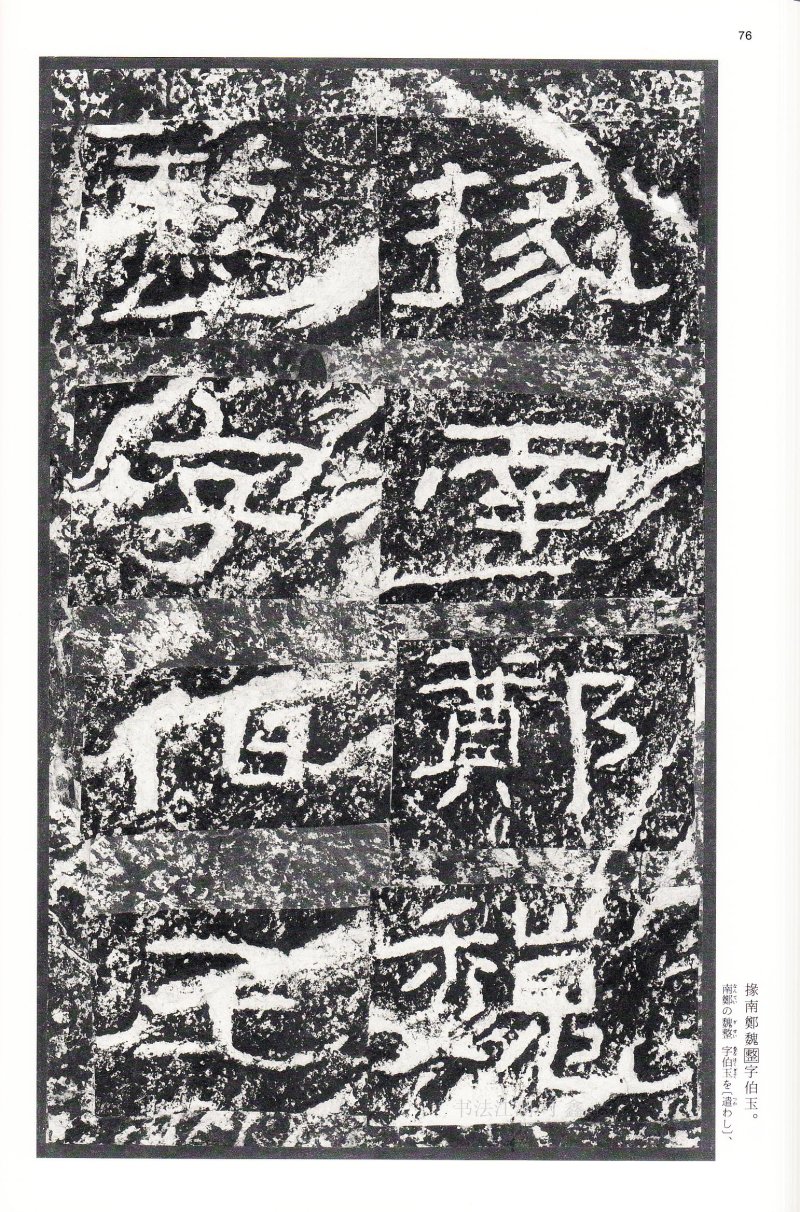 76
掾南鄭魏
整字伯玉
掾南鄭魏整字伯玉。
南鄭の魏整 字伯玉を〔遣わし〕、
书法江湖